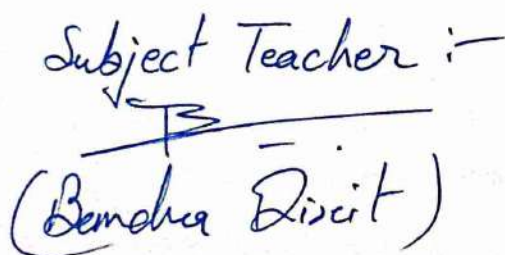 Subject Teacher :-
(Bemdra Dixit)